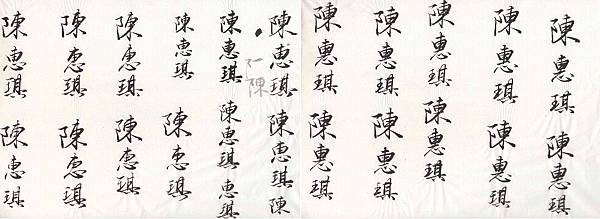 陳惠琪陳惠琪
陳惠琪陳惠琪
陳惠琪陳惠琪
陳惠琪陳惠琪
陳惠琪陳惠琪
陳惠琪陳惠琪陳
陳
陳惠琪陳惠琪惠琪
陳惠琪陳惠琪
陳惠琪陳惠琪
陳惠琪陳惠琪
陳惠琪陳惠琪